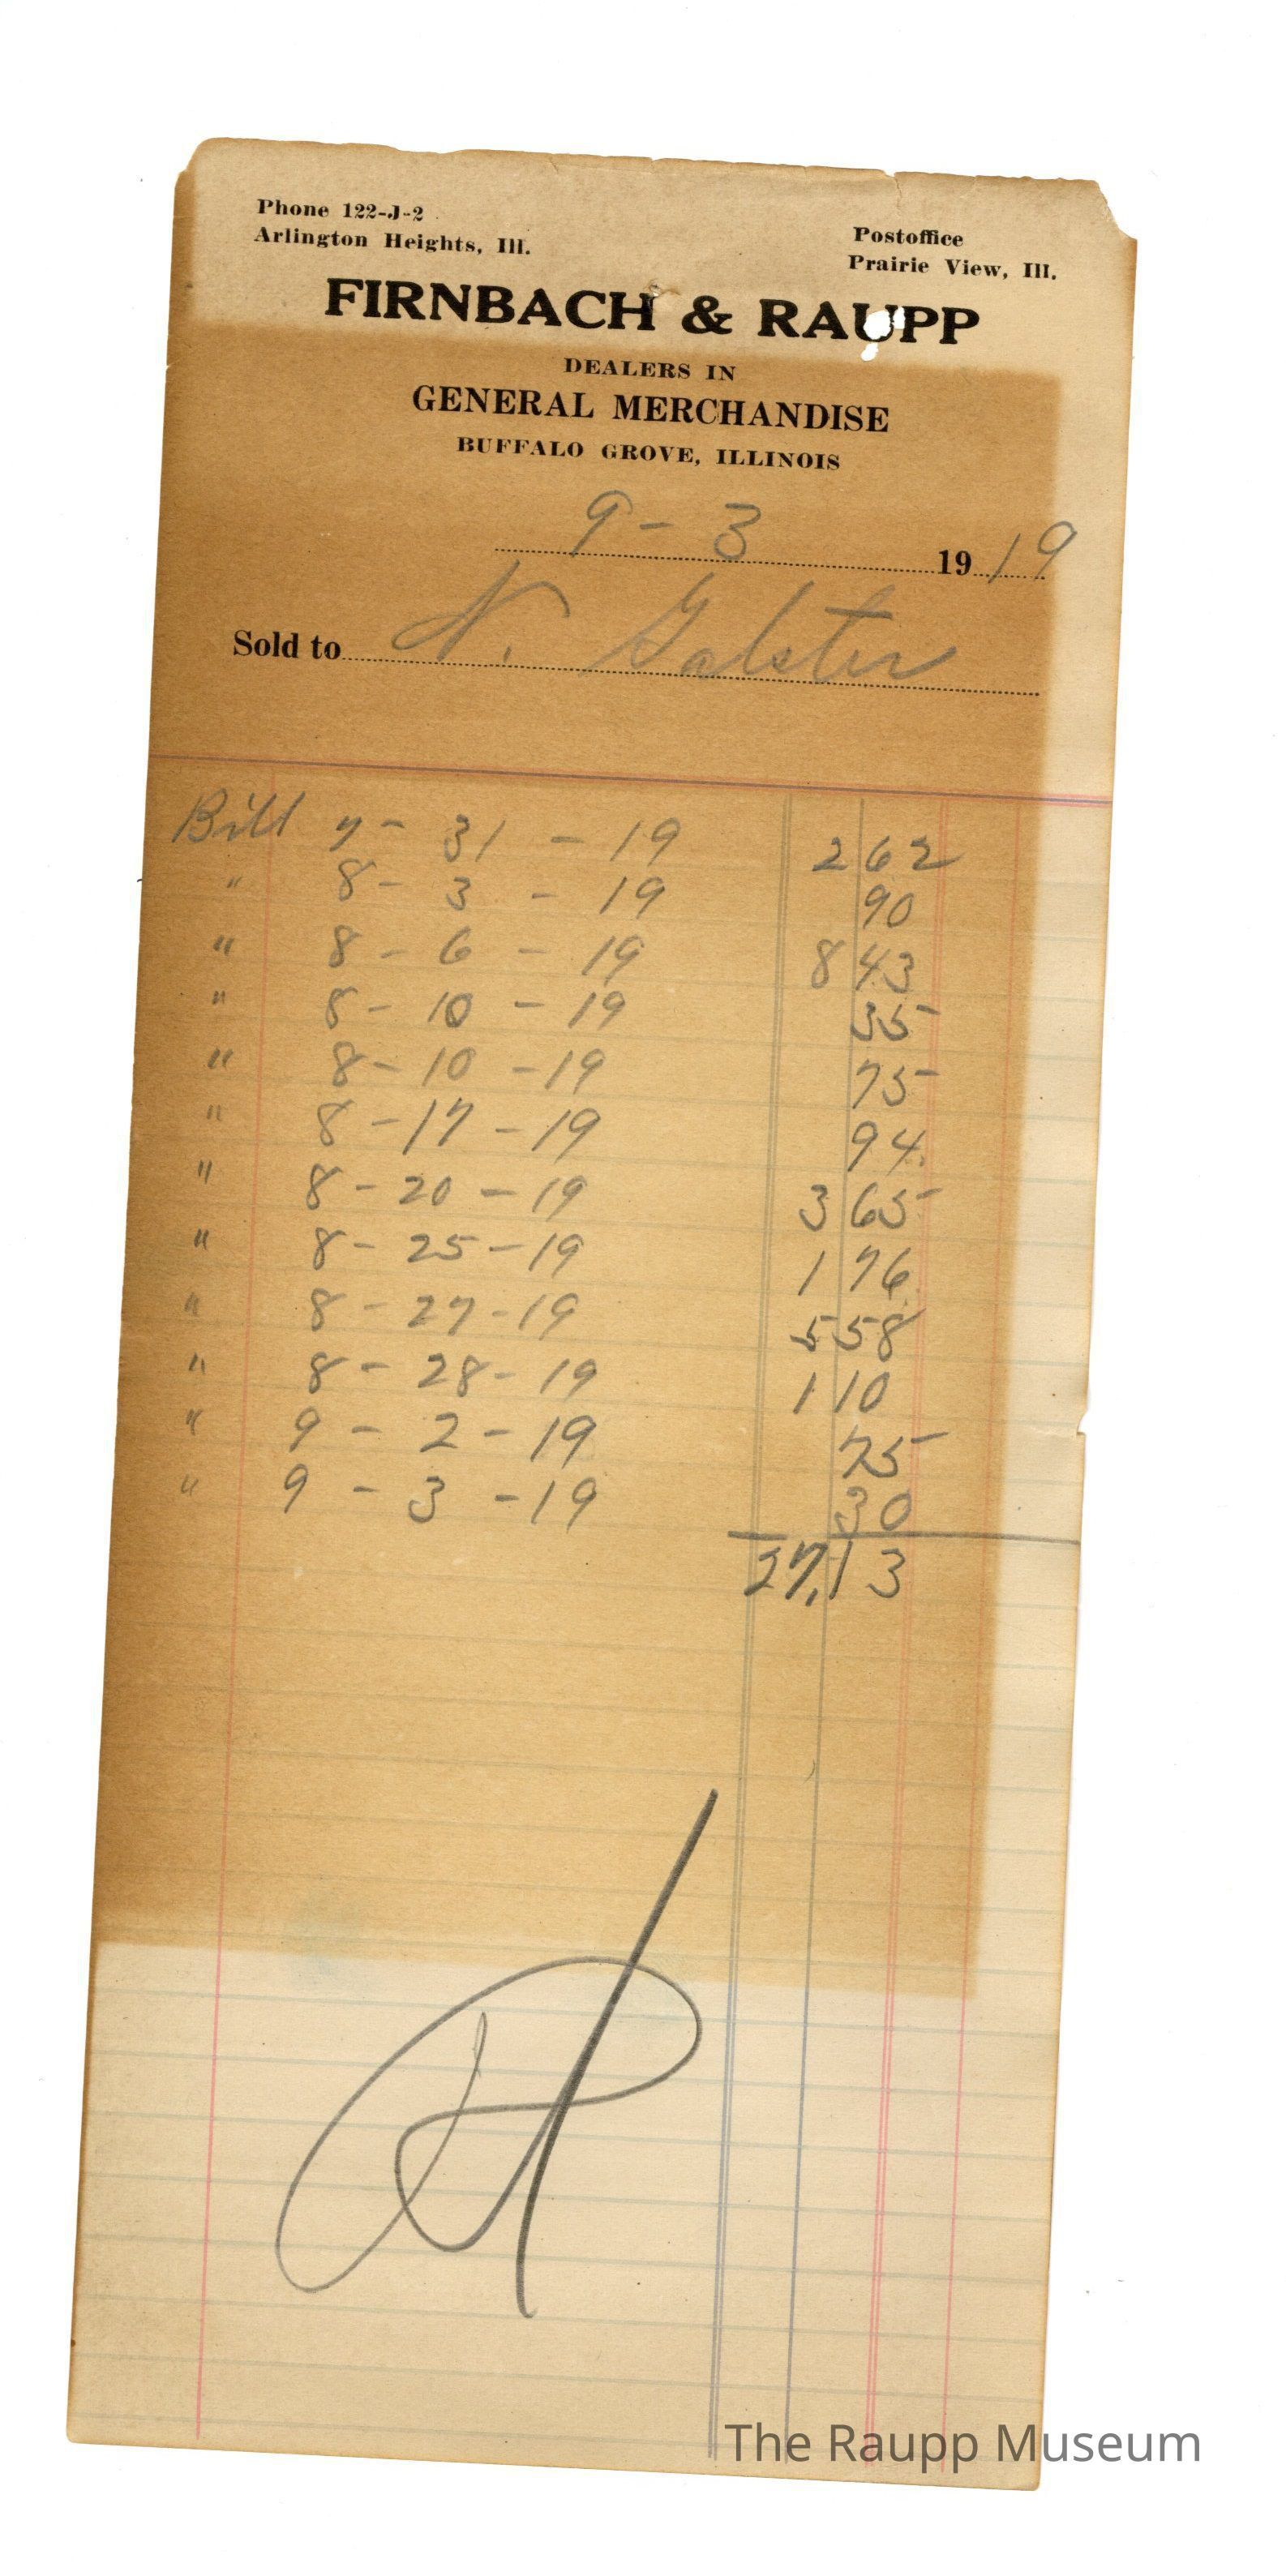 Phone 122-J-2
Arlington Heights, Ill.
Postoffice
Prairie View, Ill.
FIRNBACH & RAUPP
DEALERS IN
GENERAL MERCHANDISE
BUFFALO GROVE, ILLINOIS
9 - 3 19 19
Sold to N. Galster
Bill 7 - 31 - 19 2 62
" 8 - 3 - 19 90
" 8 - 6 - 19 8 43
" 8 - 10 - 19 35
" 8 - 10 - 19 75
" 8 - 17 - 19 94
" 8 - 20 - 19 3 65
" 8 - 25 - 19 1 76
" 8 - 27 - 19 5 58
" 8 - 28 - 19 1 10
" 9 - 2 - 19 75
" 9 - 3 - 19 30
27.13
The Raupp Museum